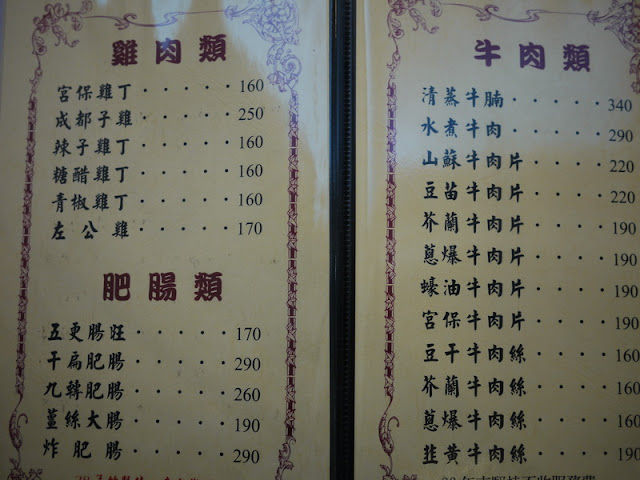 雞肉類
宮保雞丁·····160
成都子雞·····250
辣子雞丁·····160
糖醋雞丁·····160
青椒雞丁·····160
左公雞·····170
肥腸類
五更腸旺·····170
干扁肥腸·····290
九轉肥腸·····260
薑絲大腸·····190
炸肥腸·····290
牛肉類
清蒸牛腩·····340
水煮牛肉·····290
山蘇牛肉片····220
豆苗牛肉片····220
芥蘭牛肉片····190
蔥爆牛肉片····190
蠔油牛肉片····190
宮保牛肉片····190
豆干牛肉絲····160
芥蘭牛肉絲····160
蔥爆牛肉絲····160
韭黃牛肉絲····190